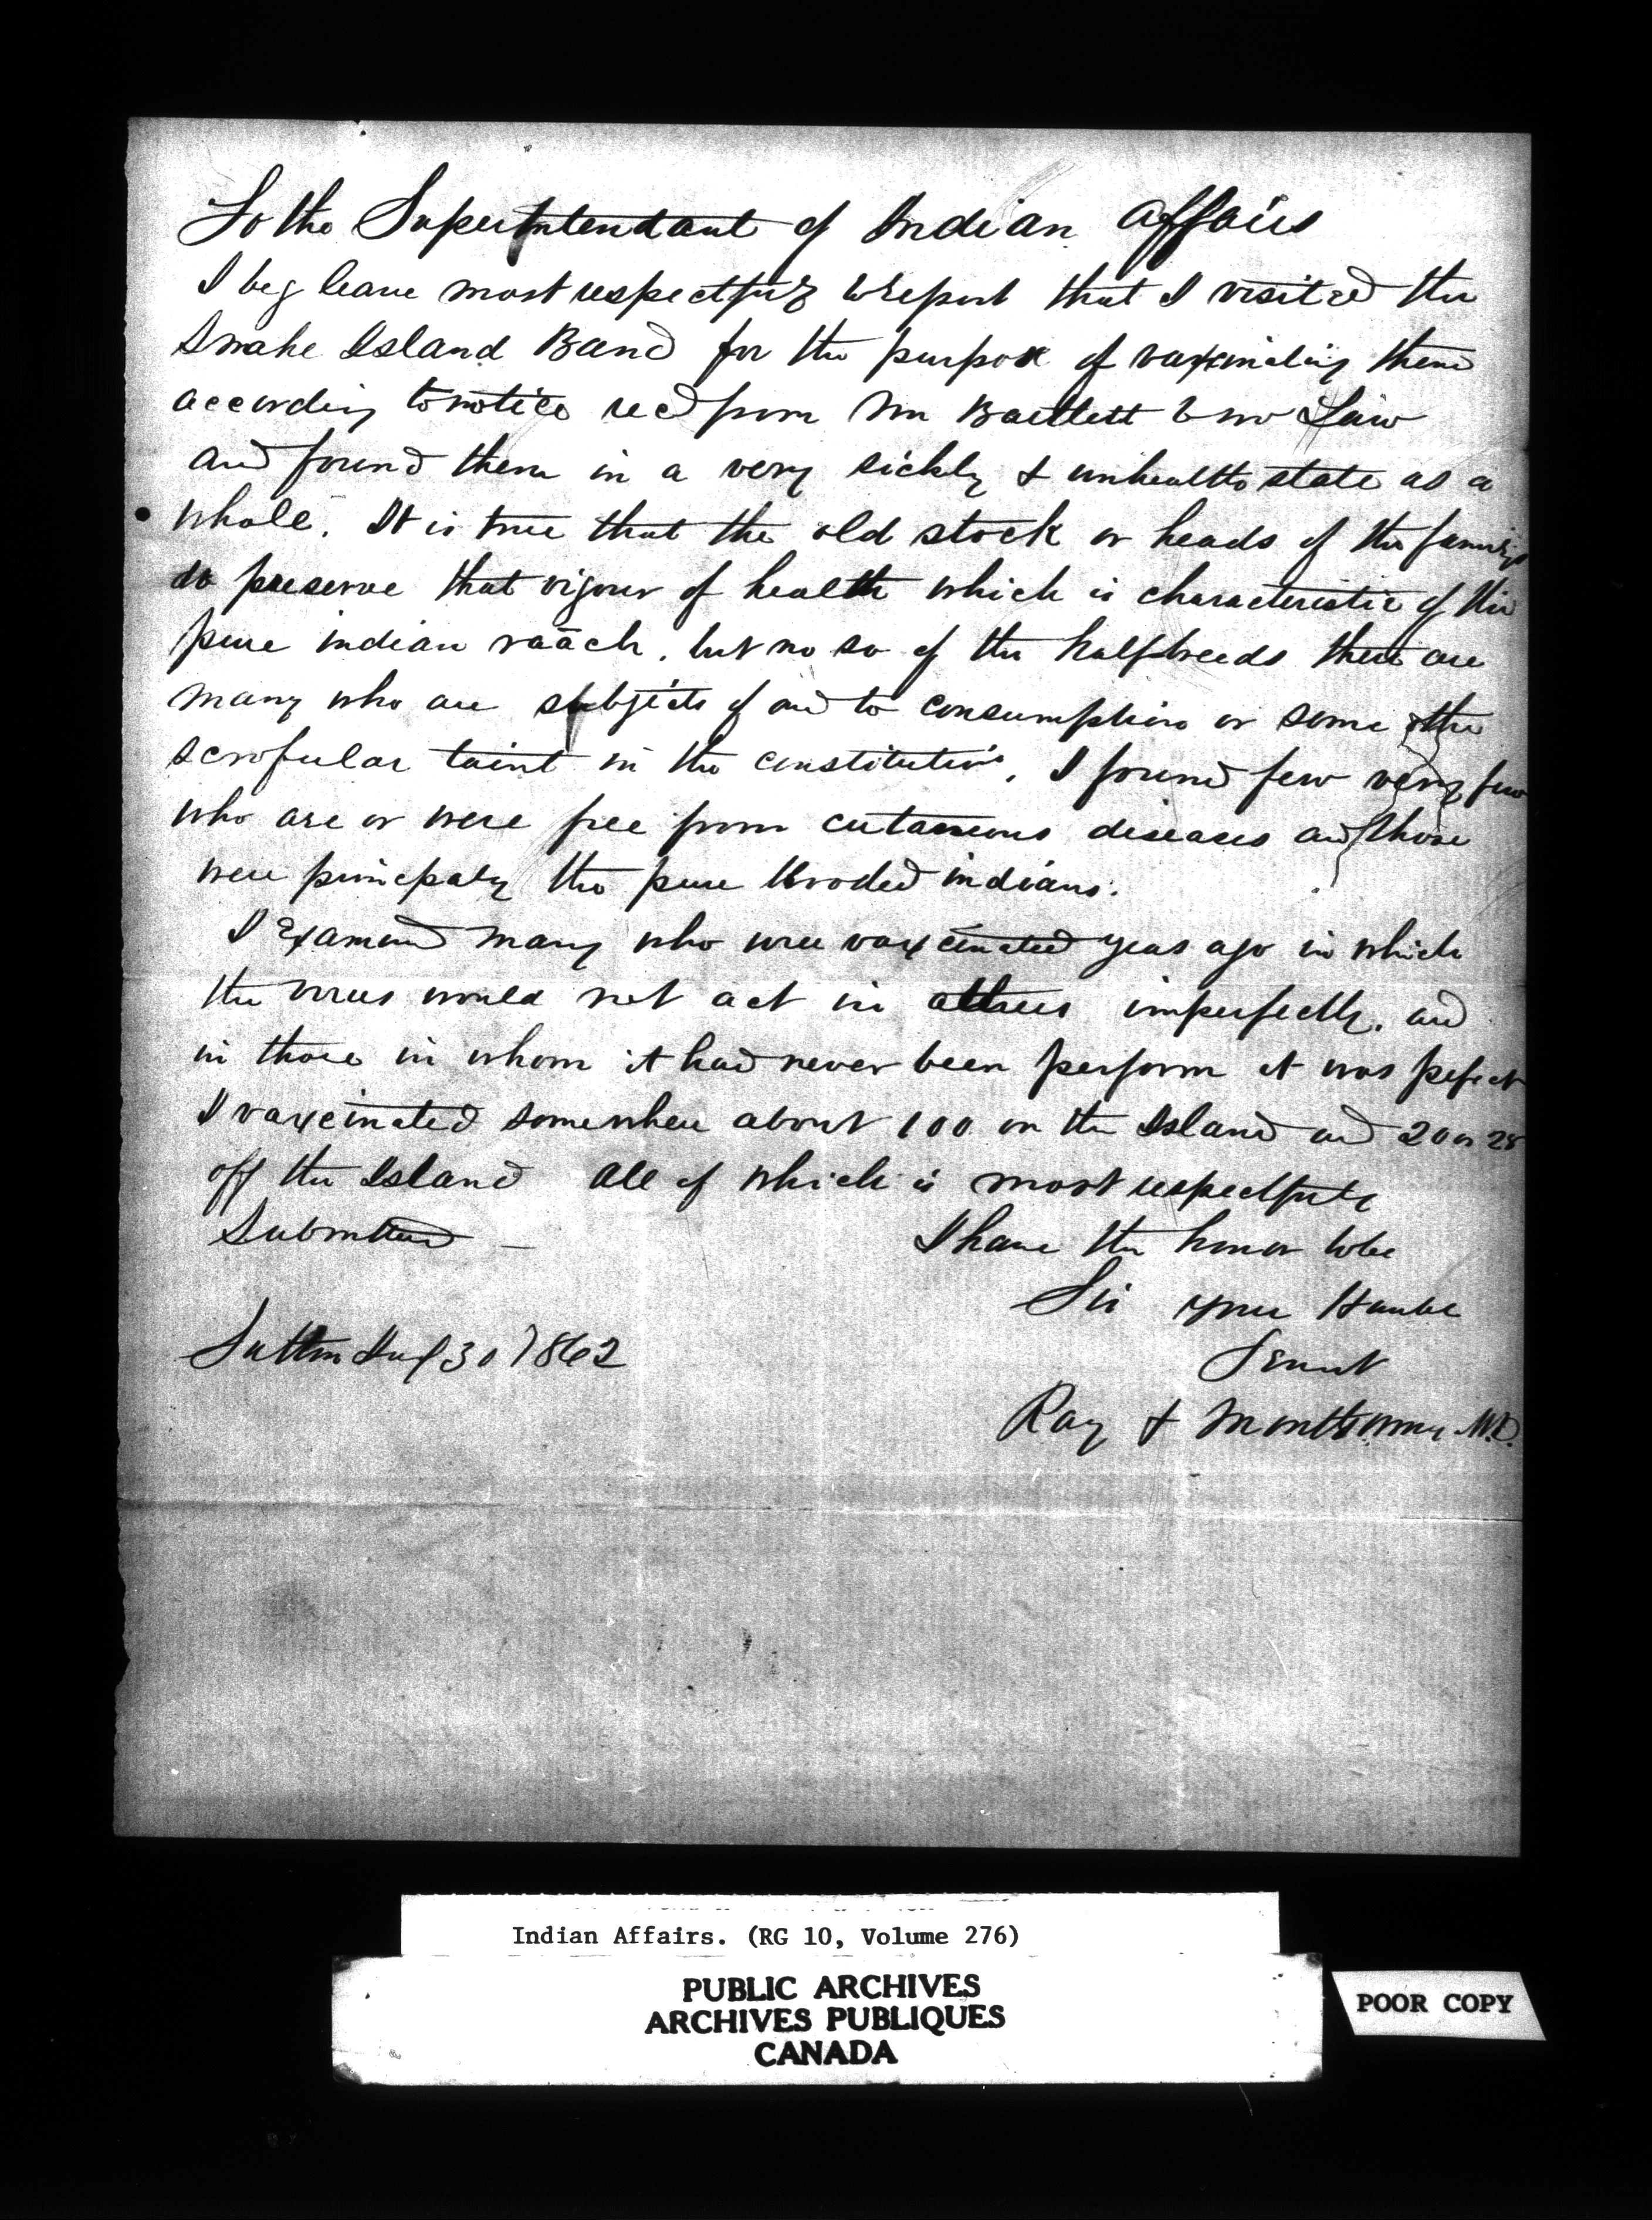 To the Superintendant of Indian Affairs
I beg leave most respectfuly to report that I visited the
Snake Island Band for the purpose of vaxcinating them
according to notice recd from Mr Bartlett & Mr Law
and found them in a very sickly & unhealthy state as a
whole. It is true that the old stock or heads of the families
do preserve that vigour of health which is characteristic of the
pure indian raach, but no so of the halfbreeds there are
many who are subjects of and to consumption or some other
scrofular taint in the constitution. I found few very few
who are or were free from cutaneous diseases and those
were principaly the pure blooded indians.
I Examined many who were vaxcinated years ago in which
the virus would not act in others imperfectly. and
in those in whom it had never been perform it was pefect
I vaxcinated somewhere about 100 on the Island and 20 or 25
off the Island all of which is most respectfuly
Submitted —
I have the honor to be
Sir your Humble
Servnt
Sutton 30 1862
Ray & Montgomery M.D.
Indian Affairs. (RG 10, Volume 276)
PUBLIC ARCHIVES
ARCHIVES PUBLIQUES
CANADA
POOR COPY